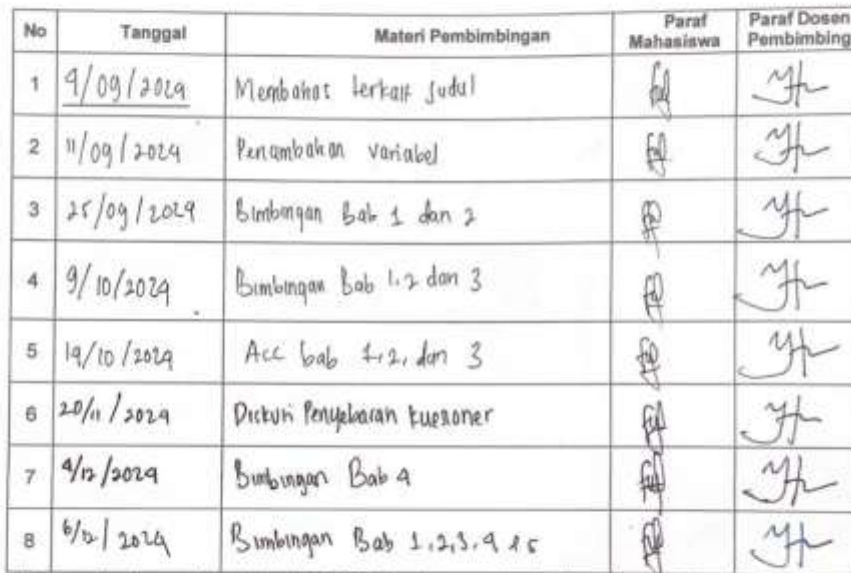 No Tanggal Materi Pembimbingan Paraf Mahasiswa Paraf Dosen Pembimbing
1 4/09/2024 Membahas terkait judul
2 11/09/2024 Penambahan variabel
3 25/09/2024 Bimbingan Bab 1 dan 2
4 9/10/2024 Bimbingan Bab 1.2 dan 3
5 19/10/2024 Acc bab 1,2, dan 3
6 20/11/2024 Diskusi Penyebaran kuesioner
7 4/12/2024 Bimbingan Bab 4
8 6/12/2024 Bimbingan Bab 1.2,3.4 & 5